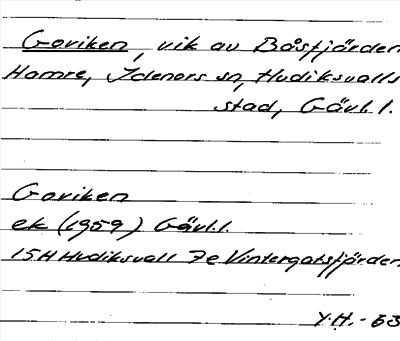 Goviken, vik av Båsfjärden
Hamre, Idenors sn, Hudiksvalls
stad, Gävl.l.
Goviken
ek (1959) Gävl.l.
15H Hudiksvall 7e Vintergatsfjärden
Y.H. - 63